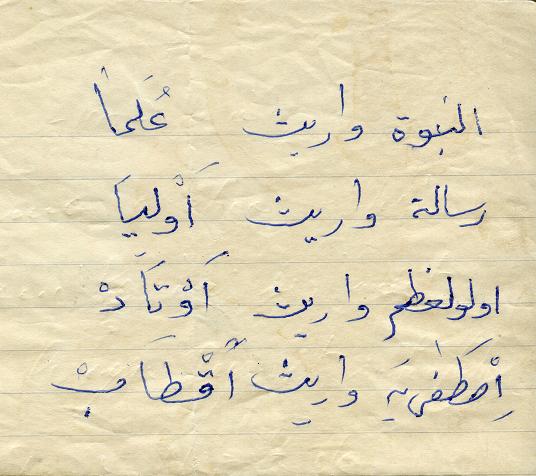 النبوة واريث عُلَماً
رسالة واريث أَوْلِيَا
اولولعظم واريث أَوْتَادْ
إصْطَفَىيَه واريث أَقْطَابْ